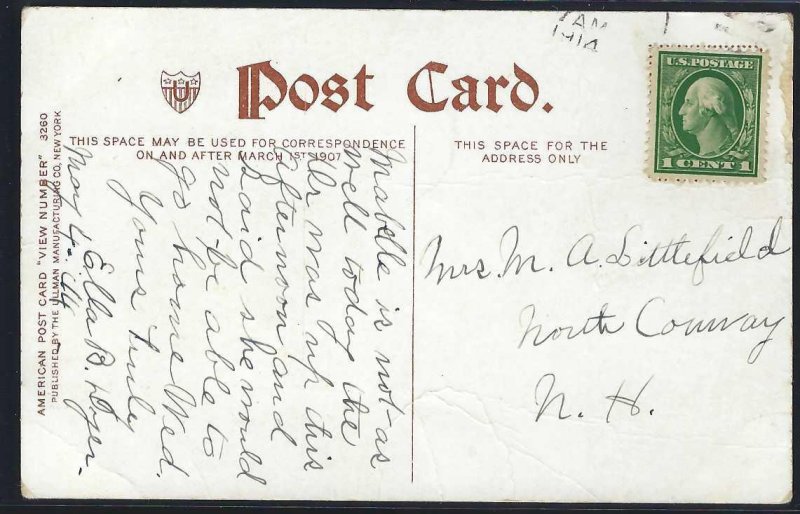 AM
1914
Post Card.
THIS SPACE MAY BE USED FOR CORRESPONDENCE
ON AND AFTER MARCH 1ST 1907
THIS SPACE FOR THE
ADDRESS ONLY
U.S. POSTAGE
1 CENT 1
AMERICAN POST CARD "VIEW NUMBER" 3260
PUBLISHED BY THE ULLMAN MANUFACTURING CO, NEW YORK
Mabelle is not as
well today the
Dr was up this
afternoon and
said she would
not be able to
go home Wed.
Yours truly
Ella B. Dyer.
May 4 - 14
Mrs. M. A. Littlefield
North Conway
N. H.